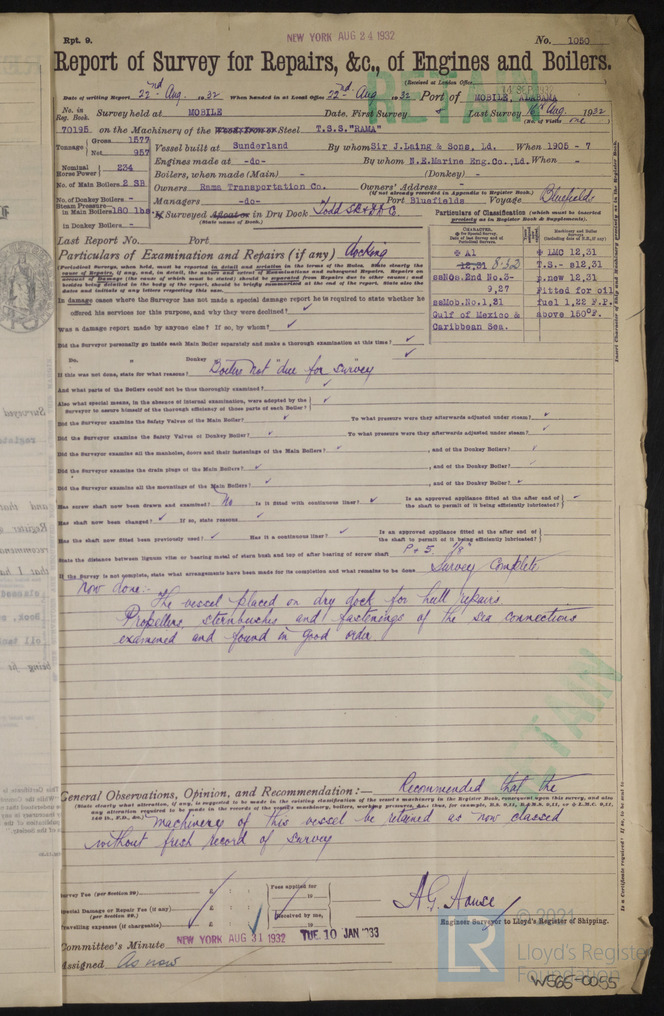 Rpt. 9.
NEW YORK AUG 24 1932
No. 1050
Report of Survey for Repairs, &c., of Engines and Boilers.
(Received at London Office
14 SEP 1932
RETAIN
Date of writing Report 22nd Aug. 1932 When handed in at Local Office 22nd Aug 1932 Port of MOBILE, ALABAMA
No. in Reg. Book. Survey held at MOBILE Date, First Survey Last Survey 16th Aug. 1932
(No. of Visits one)
70195 on the Machinery of the Wood, Iron or Steel T.S.S."RAMA"
Tonnage Gross 1577
Net 957
Vessel built at Sunderland By whom Sir J.Laing & Sons, Ld. When 1905 - 7
Engines made at -do- By whom N.E.Marine Eng.Co.,Ld. When -
Nominal Horse Power 234
Boilers, when made (Main) - (Donkey) -
No. of Main Boilers 2 SB
Owners Rama Transportation Co. Owners' Address -
(If not already recorded in Appendix to Register Book.)
No. of Donkey Boilers -
Managers -do- Port Bluefields Voyage Bluefields
Steam Pressure in Main Boilers 180 lbs.
in Donkey Boilers -
If Surveyed Afloat or in Dry Dock Todd SB & DD Co
(State name of Dock.)
Particulars of Classification (which must be inserted precisely as in Register Book & Supplements).
Last Report No. Port
Particulars of Examination and Repairs (if any) docking
CHARACTER.
Machinery and Boiler
✠ A1
12,31 8-32
ssNos.2nd No.3-
9,27
ssMob.No.1,31
Gulf of Mexico &
Caribbean Sea.
✠ LMC 12,31
T.S.- s12,31
p.new 12,31
Fitted for oil
fuel 1,22 F.P.
above 150°F.
(Periodical Surveys, when held, must be reported in detail and seriatim in the terms of the Rules. State clearly the cause of Repairs, if any, and, in detail, the nature and extent of Examinations and subsequent Repairs. Repairs on account of Damage (the cause of which must be stated) should be separated from Repairs due to other causes; and besides being detailed in the body of the report, should be briefly summarized at the end of the report. State also the dates and initials of any letters respecting this case.
In damage cases where the Surveyor has not made a special damage report he is required to state whether he
offered his services for this purpose, and why they were declined? ✓
Was a damage report made by anyone else? If so, by whom? ✓
Did the Surveyor personally go inside each Main Boiler separately and make a thorough examination at this time? ✓
Do. " Donkey " ✓
If this was not done, state for what reasons? Boilers not due for survey
And what parts of the Boilers could not be thus thoroughly examined? ✓
Also what special means, in the absence of internal examination, were adopted by the
Surveyor to assure himself of the thorough efficiency of those parts of each Boiler? ✓
Did the Surveyor examine the Safety Valves of the Main Boiler? ✓ To what pressure were they afterwards adjusted under steam? ✓
Did the Surveyor examine the Safety Valves of Donkey Boiler? ✓ To what pressure were they afterwards adjusted under steam? ✓
Did the Surveyor examine all the manholes, doors and their fastenings of the Main Boilers? ✓ , and of the Donkey Boiler? ✓
Did the Surveyor examine the drain plugs of the Main Boilers? ✓ , and of the Donkey Boiler? ✓
Did the Surveyor examine all the mountings of the Main Boilers? ✓ , and of the Donkey Boiler? ✓
Has screw shaft now been drawn and examined? No Is it fitted with continuous liner? ✓ Is an approved appliance fitted at the after end of the shaft to permit of it being efficiently lubricated? ✓
Has shaft now been changed? ✓ If so, state reasons ✓
Has the shaft now fitted been previously used? ✓ Has it a continuous liner? ✓ Is an approved appliance fitted at the after end of the shaft to permit of it being efficiently lubricated? ✓
State the distance between lignum vitæ or bearing metal of stern bush and top of after bearing of screw shaft P & S. 1/8"
If the Survey is not complete, state what arrangements have been made for its completion and what remains to be done Survey Complete
Now done:-
The vessel placed on dry dock for hull repairs
Propellers, sternbushes and fastenings of the sea connections
examined and found in good order
RETAIN
General Observations, Opinion, and Recommendation:— Recommended that the
machinery of this vessel be retained as now classed
without fresh record of survey
Survey Fee (per Section 29) £ : :
Special Damage or Repair Fee (if any) £ : :
(per Section 29.)
Travelling expenses (if chargeable) £ : :
Fees applied for
19
Received by me,
19
Engineer Surveyor to Lloyd's Register of Shipping.
Committee's Minute NEW YORK AUG 31 1932 TUE. 10 JAN 1933
Assigned As now
© 2021
LR
Lloyd's Register
Foundation
W565-0055